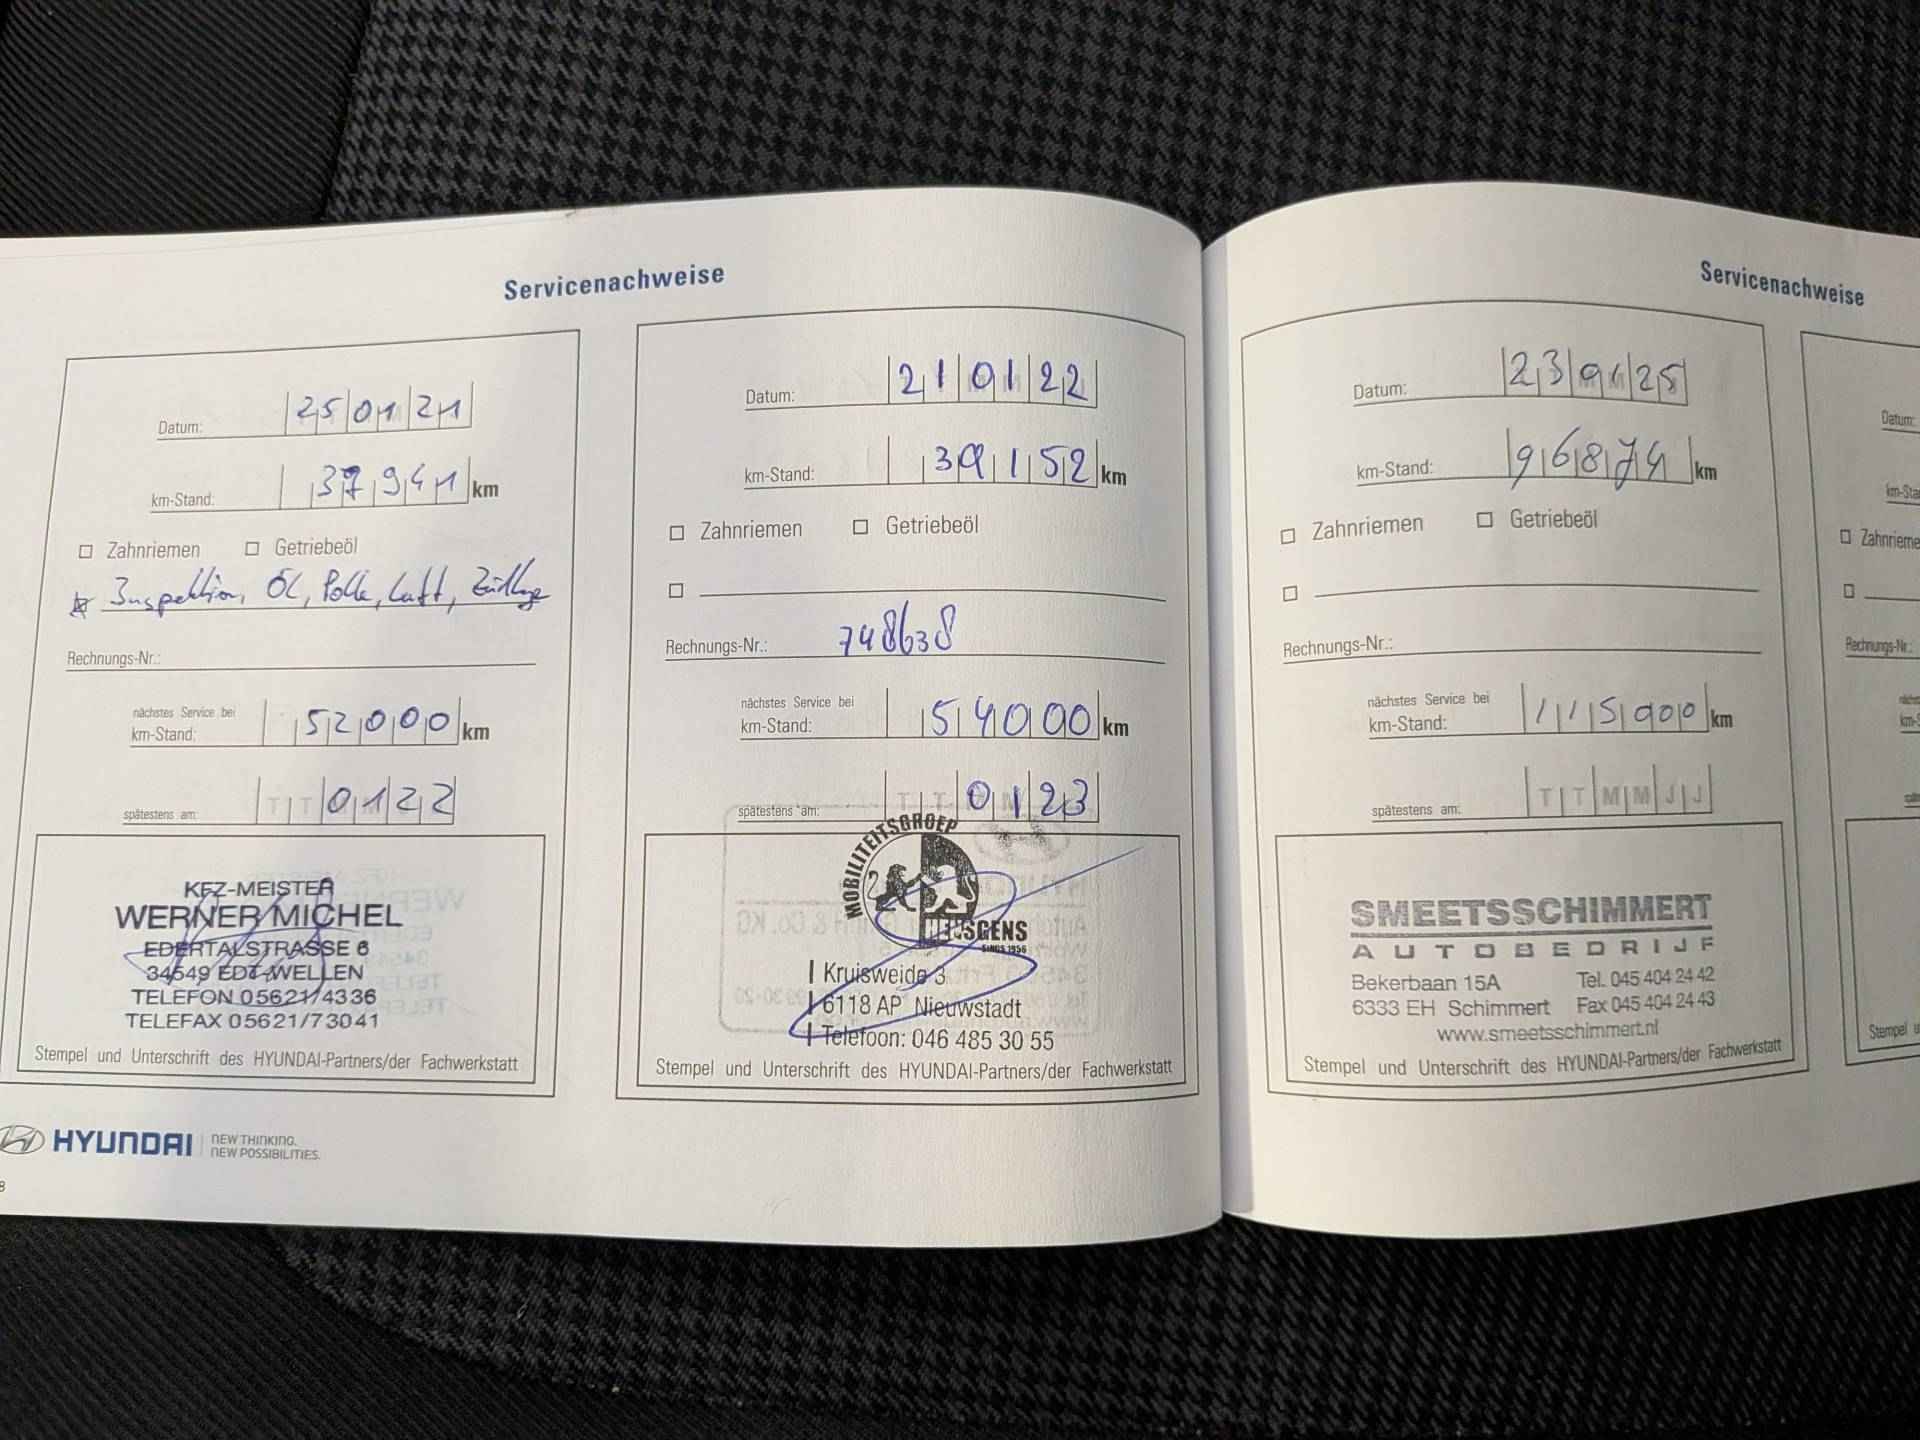 Servicenachweise
Datum: 25 01 21
km-Stand: 37941 km
Zahnriemen Getriebeöl
Inspektion, Öl, Polle, Luft,
Rechnungs-Nr.:
nächstes Service bei
km-Stand: 52000 km
spätestens am: TT 01 22
KFZ-MEISTER
WERNER MICHEL
EDERTALSTRASSE 6
34549 EDT-WELLEN
TELEFON 05621/4336
TELEFAX 05621/73041
Stempel und Unterschrift des HYUNDAI-Partners/der Fachwerkstatt
Datum: 21 01 22
km-Stand: 39152 km
Zahnriemen Getriebeöl
Rechnungs-Nr.: 748638
nächstes Service bei
km-Stand: 54000 km
spätestens am: TT 01 23
MOBILITEITSGROEP
SINDS 1956
Kruisweide 3
6118 AP Nieuwstadt
Telefoon: 046 485 30 55
Stempel und Unterschrift des HYUNDAI-Partners/der Fachwerkstatt
HYUNDAI NEW THINKING.
NEW POSSIBILITIES.
8
Servicenachweise
Datum: 23 01 25
km-Stand: 96874 km
Zahnriemen Getriebeöl
Rechnungs-Nr.:
nächstes Service bei
km-Stand: 115000 km
spätestens am: T T M M J J
SMEETSSCHIMMERT
AUTOBEDRIJF
Bekerbaan 15A Tel. 045 404 24 42
6333 EH Schimmert Fax 045 404 24 43
www.smeetsschimmert.nl
Stempel und Unterschrift des HYUNDAI-Partners/der Fachwerkstatt
Datum:
km-Sta
Zahnrieme
Rechnungs-Nr.:
km-S
Stempel u